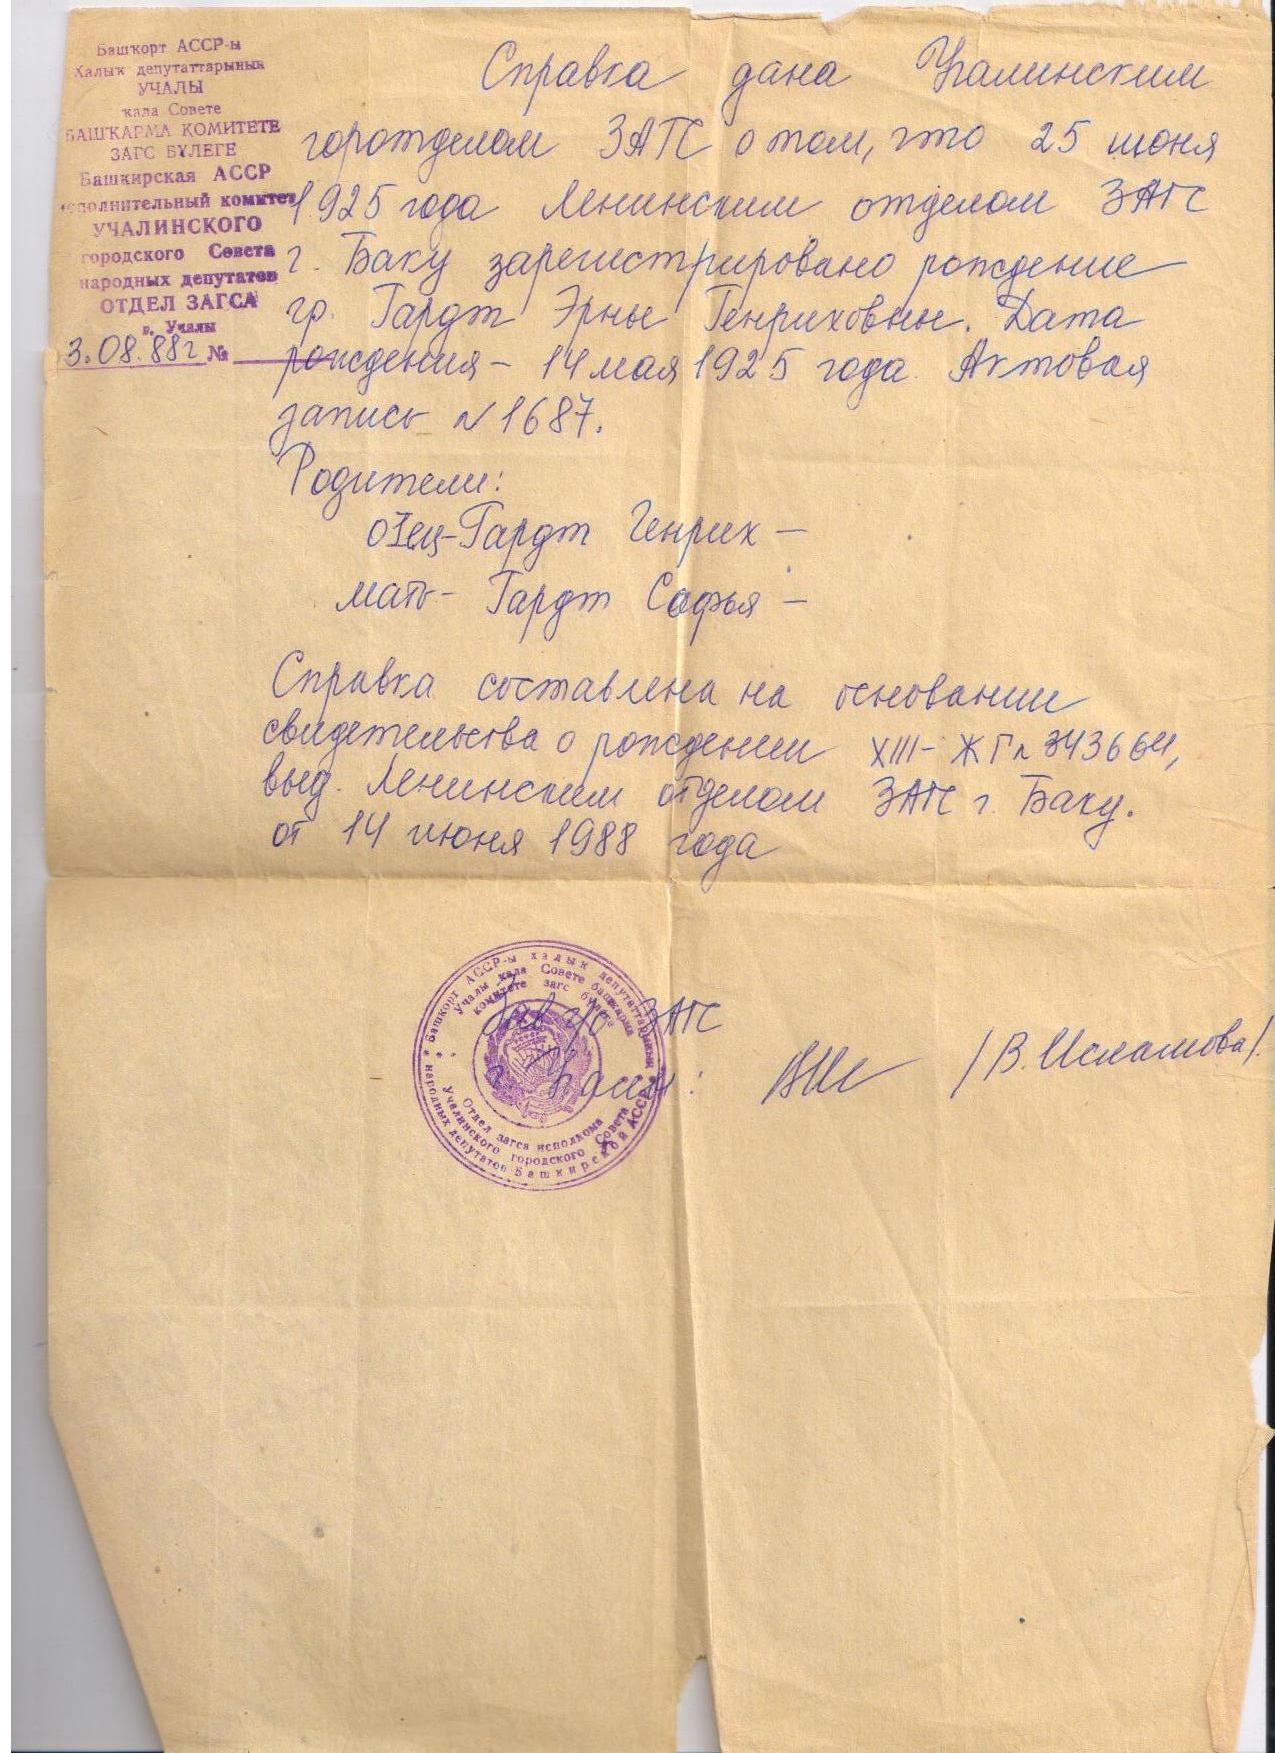 Башҡорт АССР-ы
Халыҡ депутаттарының
УЧАЛЫ
ҡала Совете
БАШҠАРМА КОМИТЕТЕ
ЗАГС БҮЛЕГЕ
Башкирская АССР
исполнительный комитет
УЧАЛИНСКОГО
городского Совета
народных депутатов
ОТДЕЛ ЗАГСА
г. Учалы
3.08.88г №
Справка дана Учалинским
горотделом ЗАГС о том, что 25 июня
1925 года Ленинским отделом ЗАГС
г. Баку зарегистрировано рождение
гр. Гардт Эрны Генриховны. Дата
рождения – 14 мая 1925 года. Актовая
запись N 1687.
Родители:
отец - Гардт Генрих –
мать - Гардт Софья –
Справка составлена на основании
свидетельства о рождении XIII - ЖГ N 343664,
выд. Ленинским отделом ЗАГС г. Баку.
от 14 июня 1988 года
Зав г/о ЗАГС
г. /В. Исламова/.
Башҡорт АССР-ы халыҡ депутаттарының
Учалы ҡала Совете башҡарма
комитете загс бүлеге
Отдел загса исполкома
Учалинского городского Совета
народных депутатов Башкирской АССР